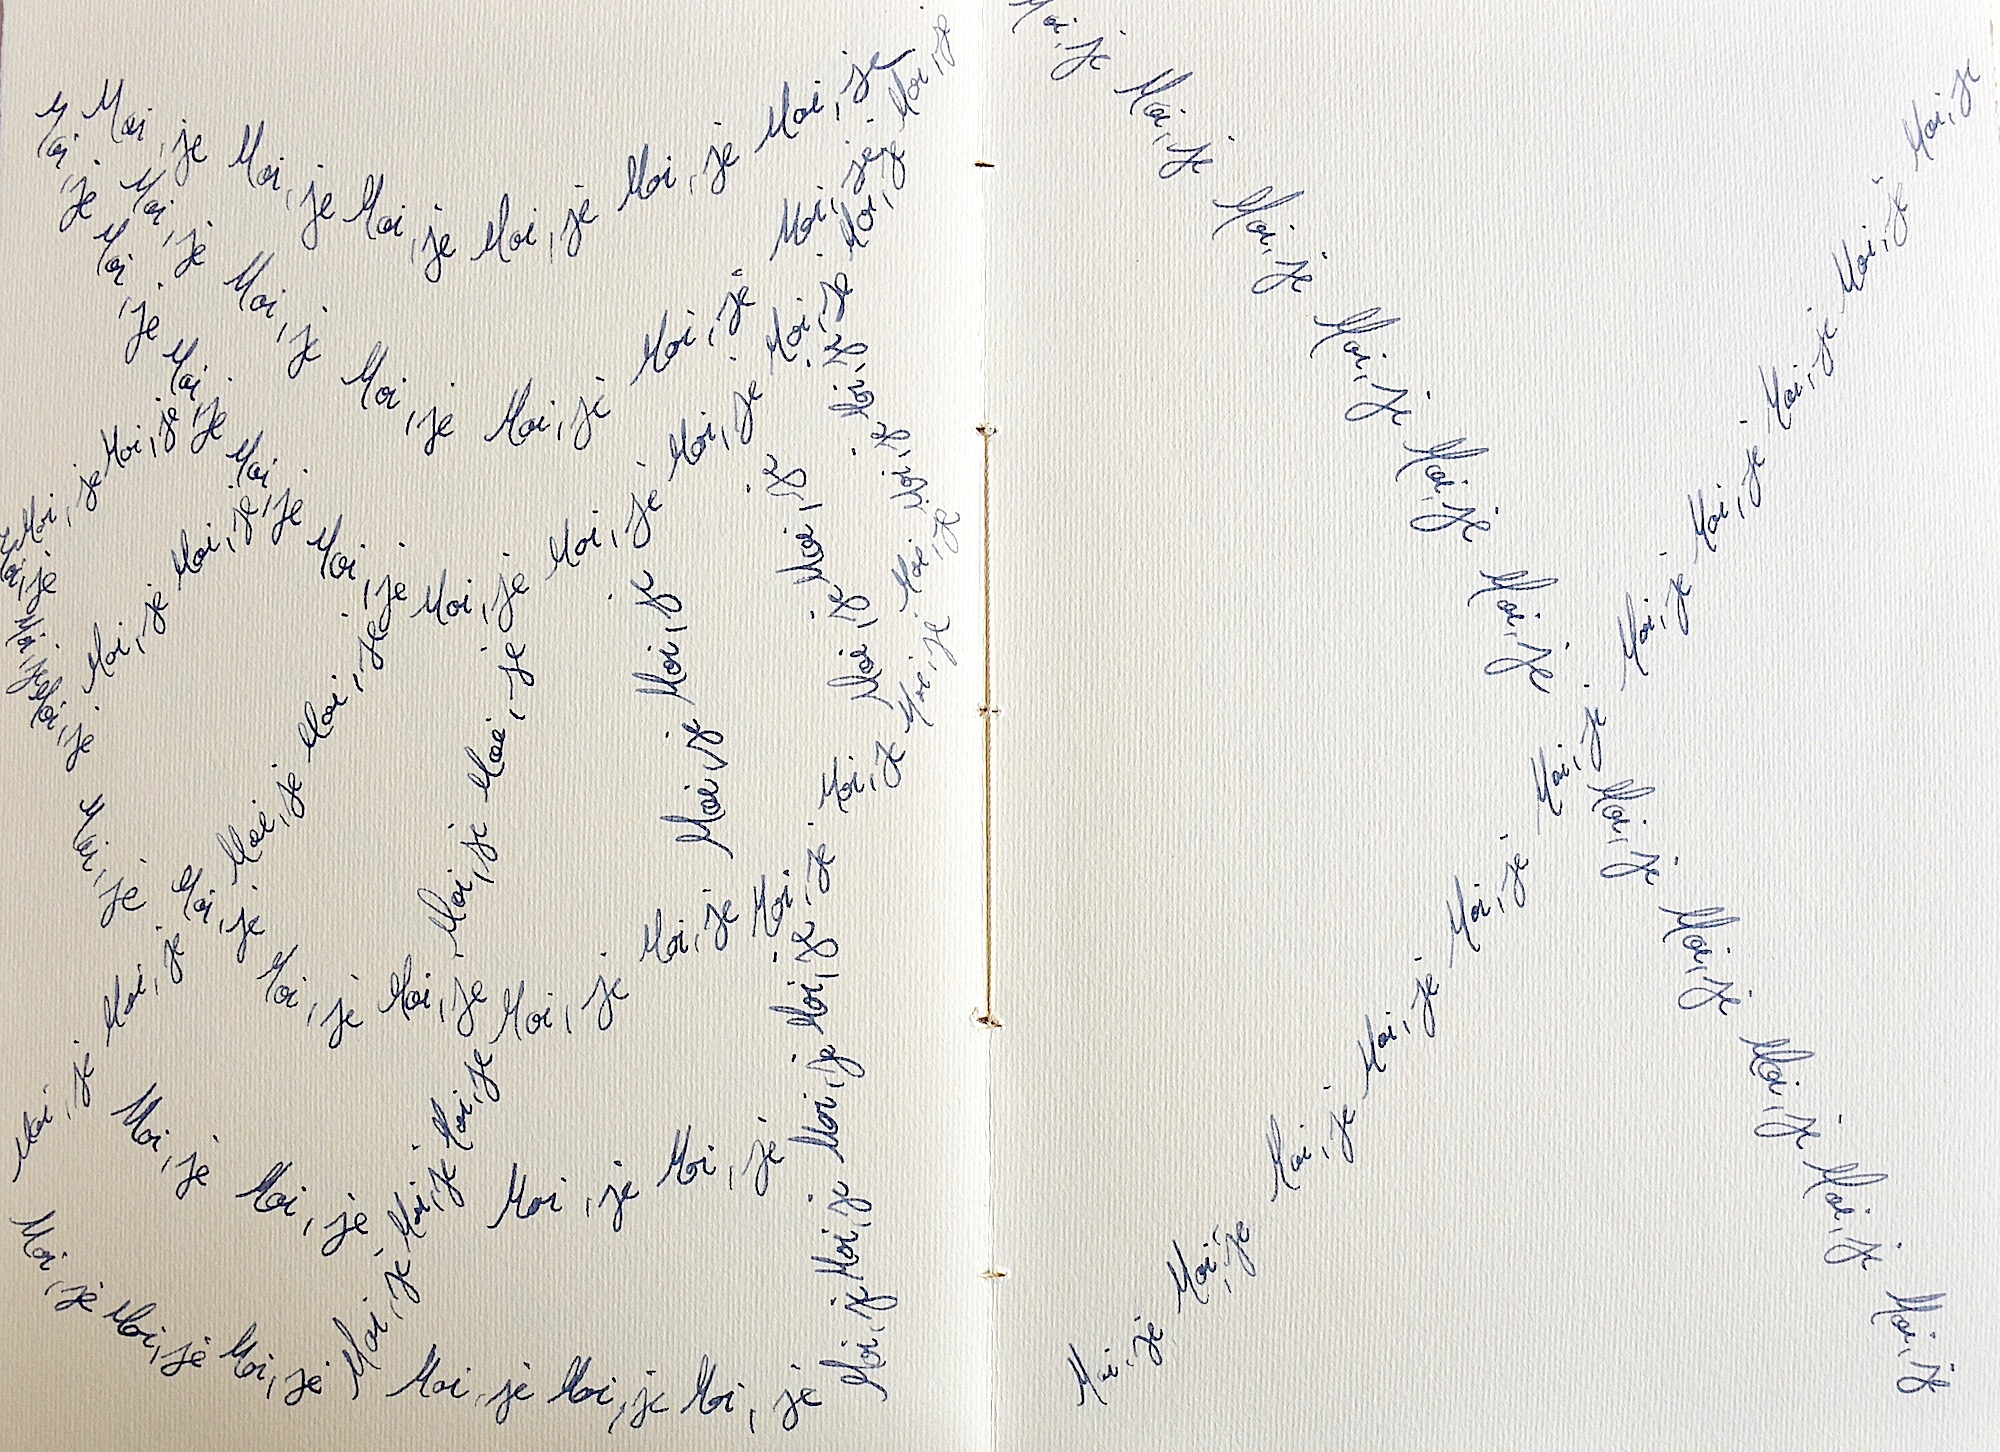 Moi, je Moi, je Moi, je Moi, je Moi, je Moi, je
Moi, je Moi, je Moi, je Moi, je Moi, je Moi, je
Moi, je Moi, je Moi, je Moi, je Moi, je Moi, je Moi, je Moi, je Moi, je Moi, je Moi, je
Moi, je Moi, je
Moi, je Moi, je
Moi, je Moi, je Moi, je Moi, je Moi, je Moi, je Moi, je Moi, je Moi, je Moi, je Moi, je Moi, je
Moi, je Moi, je Moi, je Moi, je
Moi, je Moi, je Moi, je Moi, je Moi, je
Moi, je Moi, je
Moi, je
Moi, je
Moi, je
Moi, je Moi, je
Moi, je Moi, je Moi, je Moi, je
Moi, je Moi, je Moi, je Moi, je Moi, je Moi, je
Moi, je Moi, je Moi, je Moi, je
Moi, je Moi, je Moi, je Moi, je Moi, je Moi, je Moi, je Moi, je Moi, je Moi, je Moi, je
Moi, je Moi, je Moi, je Moi, je Moi, je Moi, je Moi, je Moi, je Moi, je Moi, je Moi, je